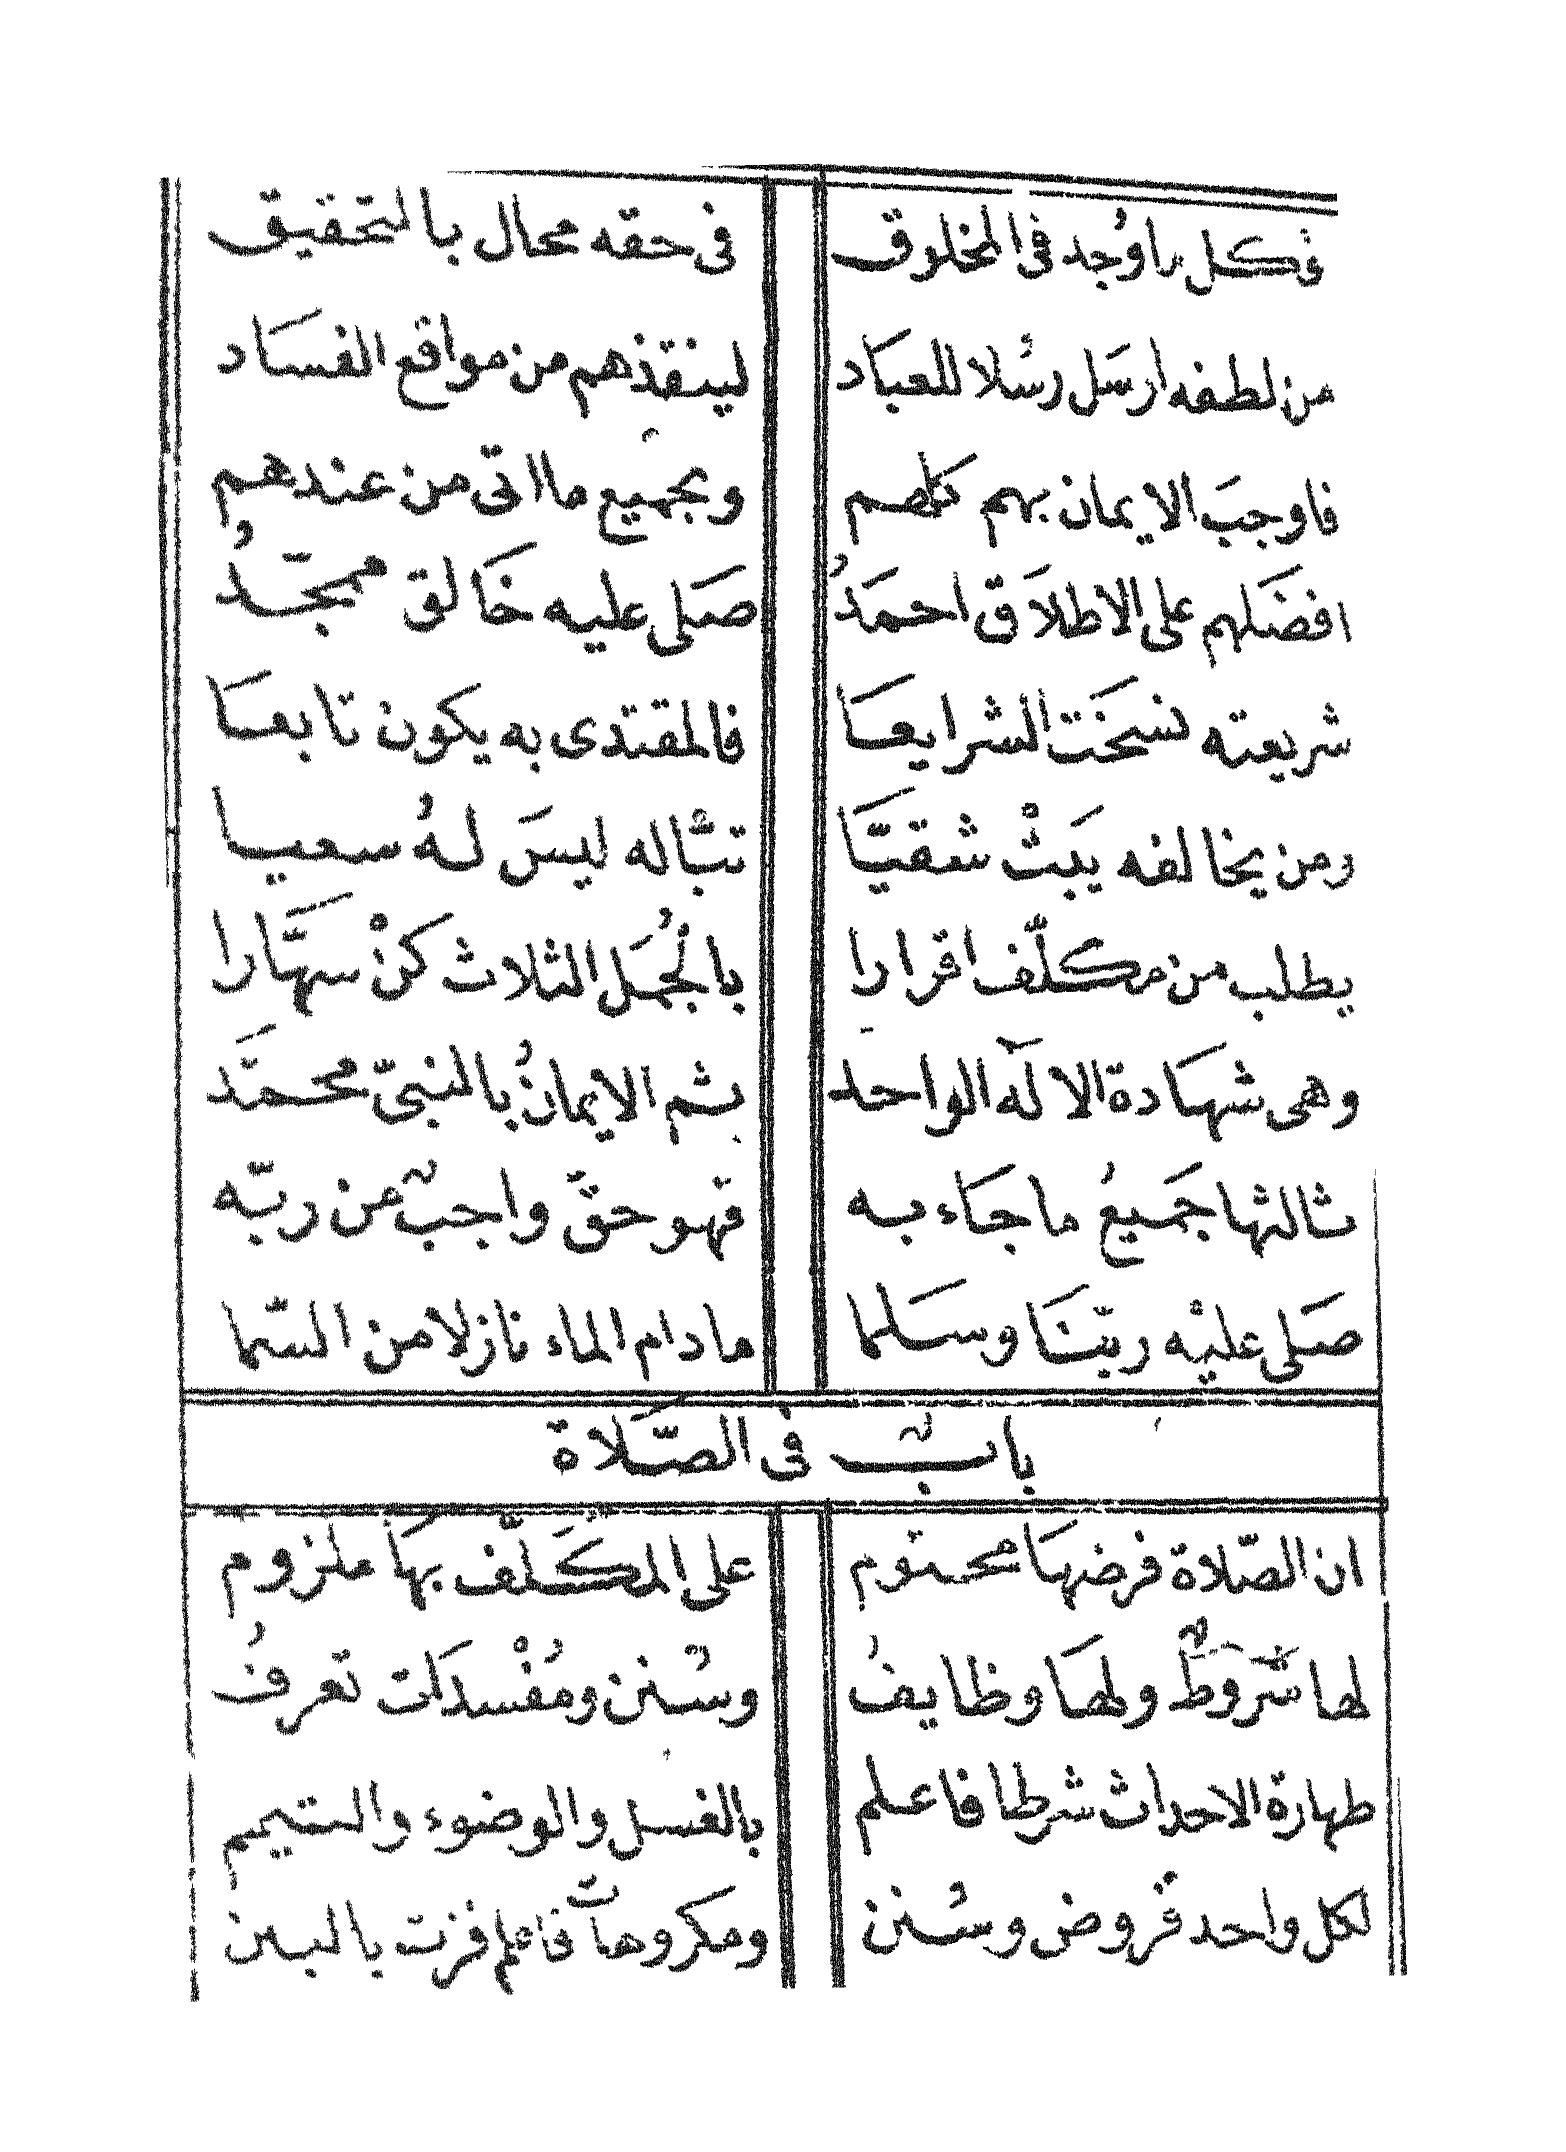 فكل ما وُجد فى المخلوق فى حقه محال بالتحقيق
من لطفه ارسَل رسُلا للعبَاد لينقذهم من مواقع الفسَاد
فاوجبَ الايمان بهم كلهم وبجميع ما اتى من عندهم
افضَلهم على الاطلاق احمَدُ صَلى عليه خَالق ممجّدُ
شريعته نسخَت الشرايعَا فالمقتدى به يكون تابعَا
ومن يخالفه يبَثْ شقيَّا تبّاله ليسَ لهُ سعيا
يطلب من مكلّف اقرارا بالجُمَل الثلاث كنْ سهَّارا
وهى شهَادة الا لَه الواحد بثم الايمانُ بالنبىّ محمَّد
ثالثها جَميعُ ما جَاء به فهو حقّ واجبٌ من ربّه
صَلى عليْه ربّنَا وسَلما مادام الماء نازلا من السّما
بابٌ فى الصَّلاة
ان الصّلاة فرضهَا محتوم على المكَلّف بهَا ملزوم
لها شَروَطٌ ولهَا وظايفُ وسُنن ومُفْسدَات تعرفُ
طهارة الاحداث شرطا فاعلم بالغسل والوضوء والتيمم
لكل واحد فروض وسُنن ومكروهات فاعلم فزت بالبين